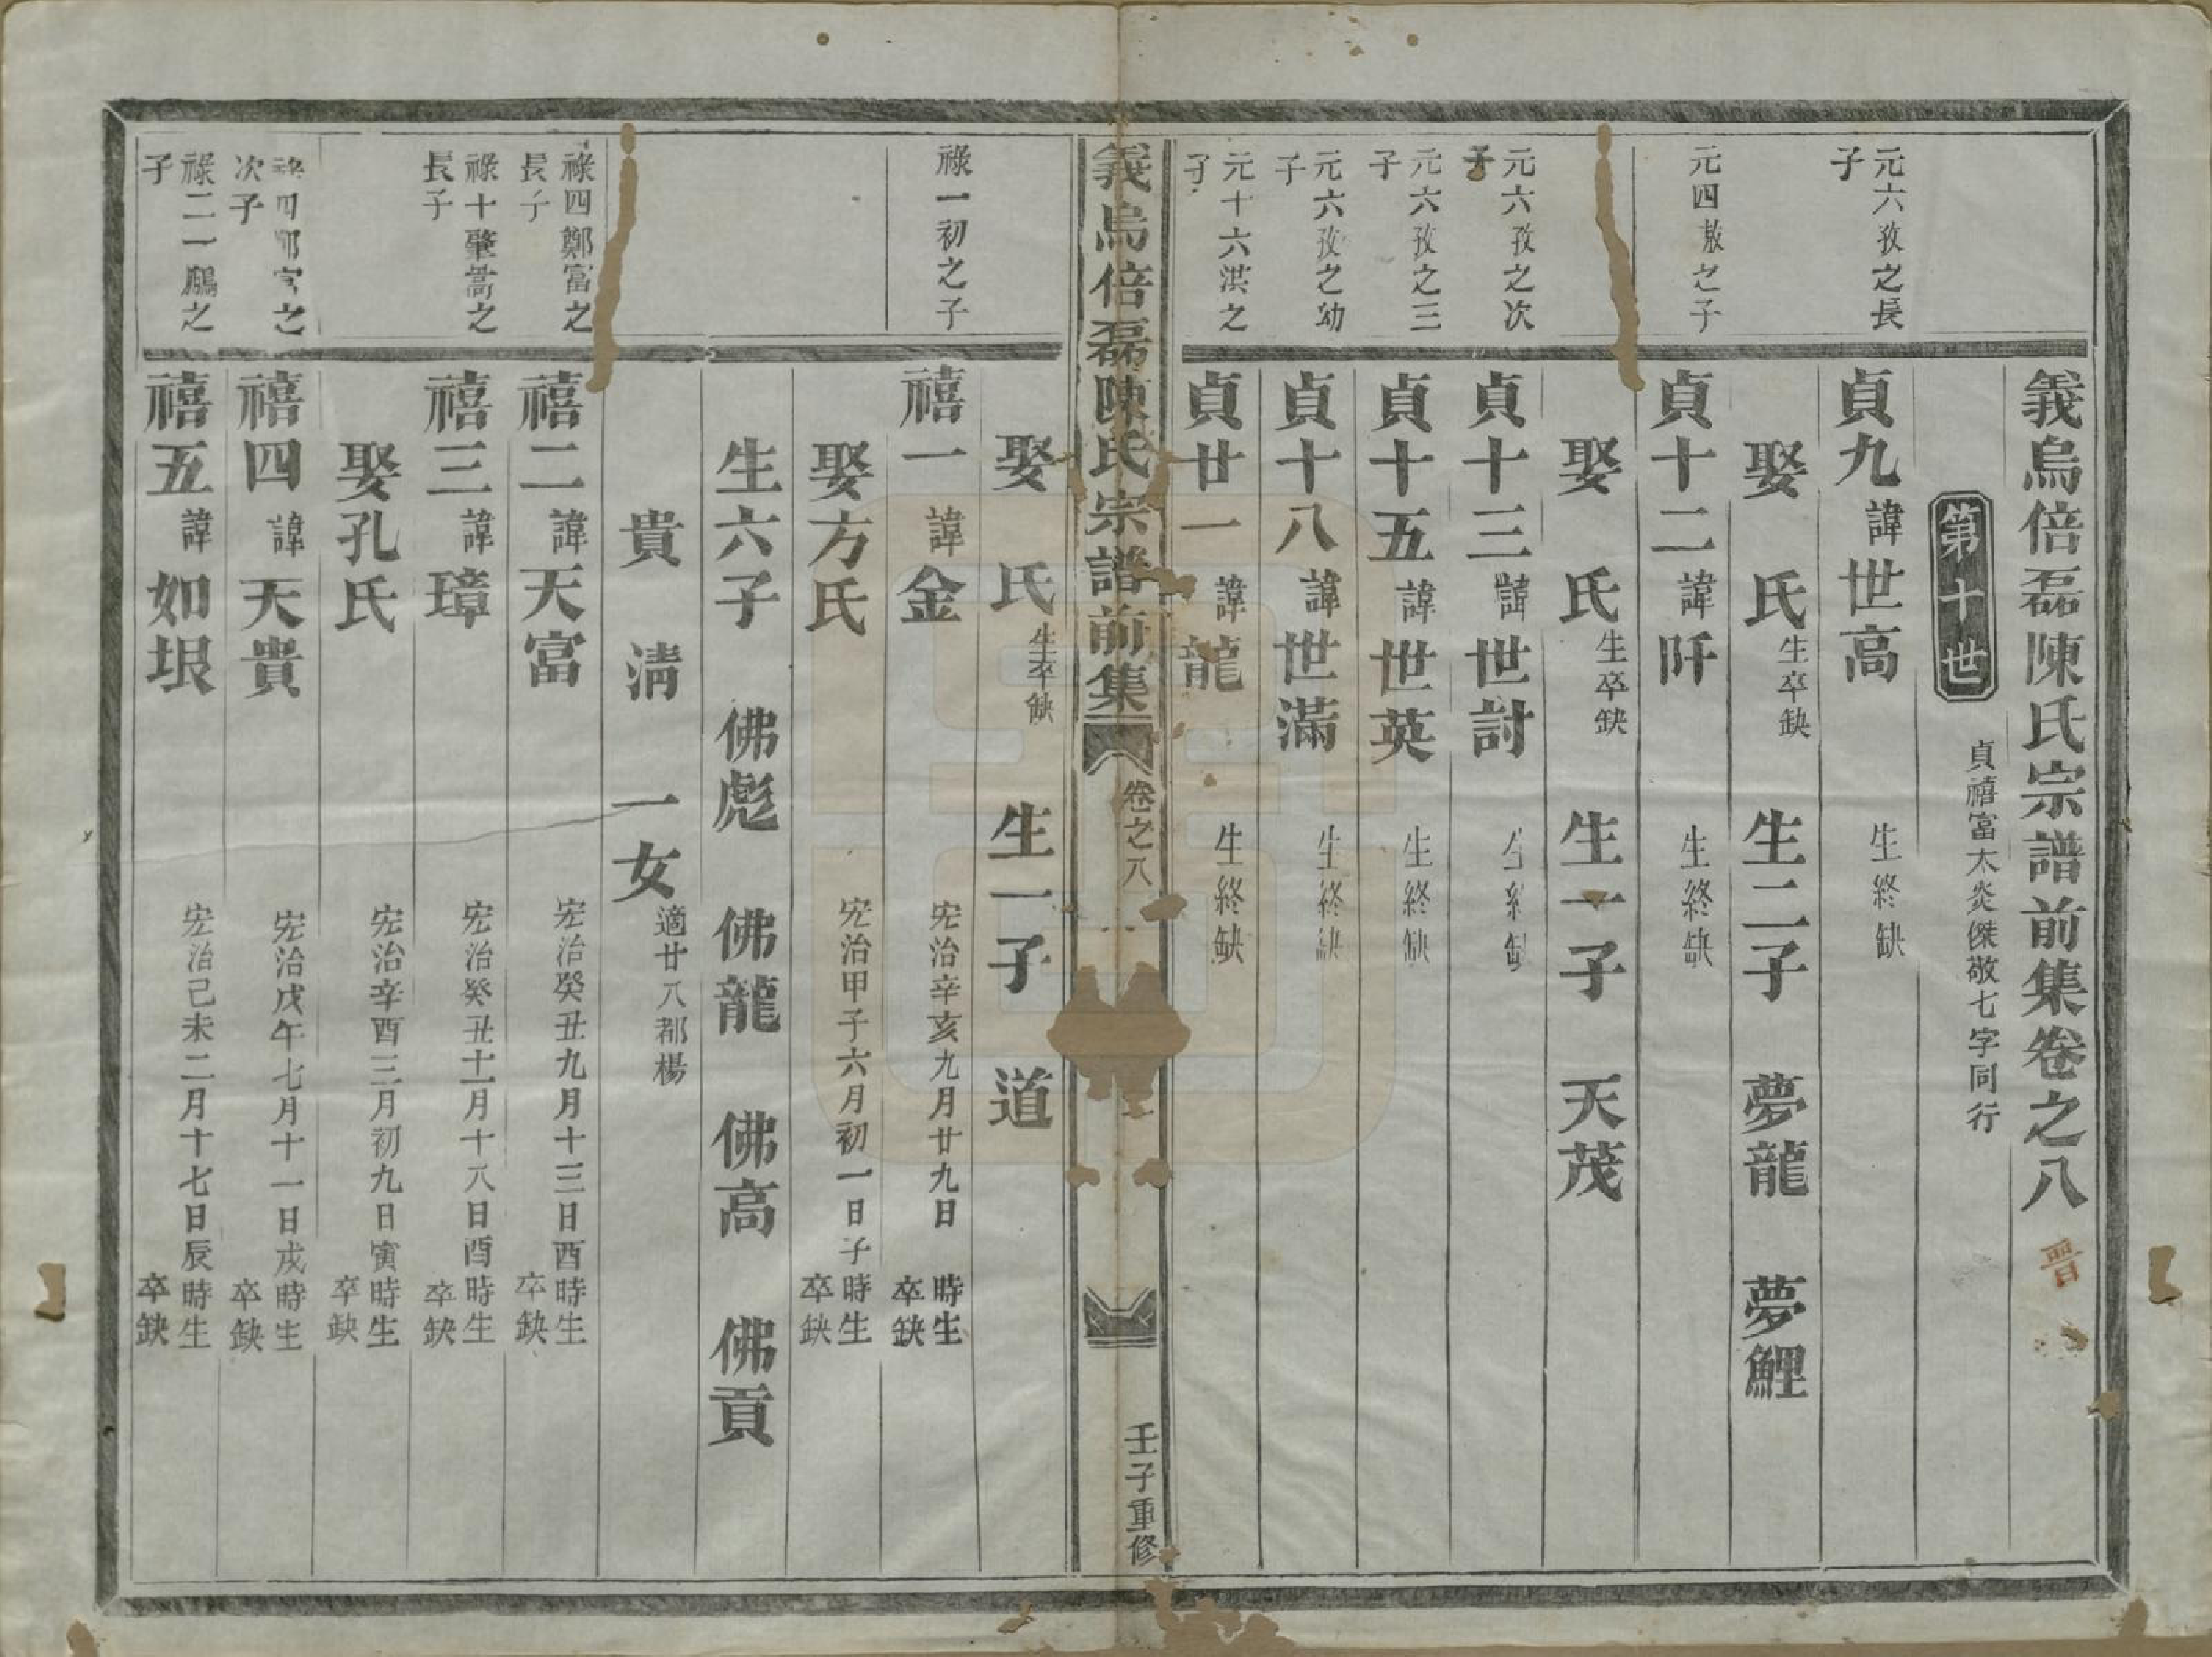 義烏倍磊陳氏宗譜前集卷之八
第十世 貞禧富太炎傑敬七字同行
元六孜之長子
貞九 諱世高 生終缺
娶 氏 生卒缺 生二子 夢龍 夢鯉
元四敖之子
貞十二 諱阡 生終缺
娶 氏 生卒缺 生一子 天茂
元六孜之次子
貞十三 諱世討 生終缺
元六孜之三子
貞十五 諱世英 生終缺
元六孜之幼子
貞十八 諱世滿 生終缺
元十六淇之子
貞廿一 諱龍 生終缺
義烏倍磊陳氏宗譜前集 卷之八 壬子重修
娶 氏 生卒缺 生一子 道
祿一初之子
禧一 諱金 宏治辛亥九月廿九日 時生 卒缺
娶方氏 宏治甲子六月初一日子時生 卒缺
生六子 佛彪 佛龍 佛高 佛貢
貴 清 一女 適廿八都楊
祿四鄭富之長子
禧二 諱天富 宏治癸丑九月十三日酉時生 卒缺
祿十肇嵩之長子
禧三 諱璋 宏治癸丑十一月十八日酉時生 卒缺
娶孔氏 宏治辛酉三月初九日寅時生 卒缺
祿四鄭富之次子
禧四 諱天貴 宏治戊午七月十一日戌時生 卒缺
祿二一鵰之子
禧五 諱如垠 宏治己未二月十七日辰時生 卒缺